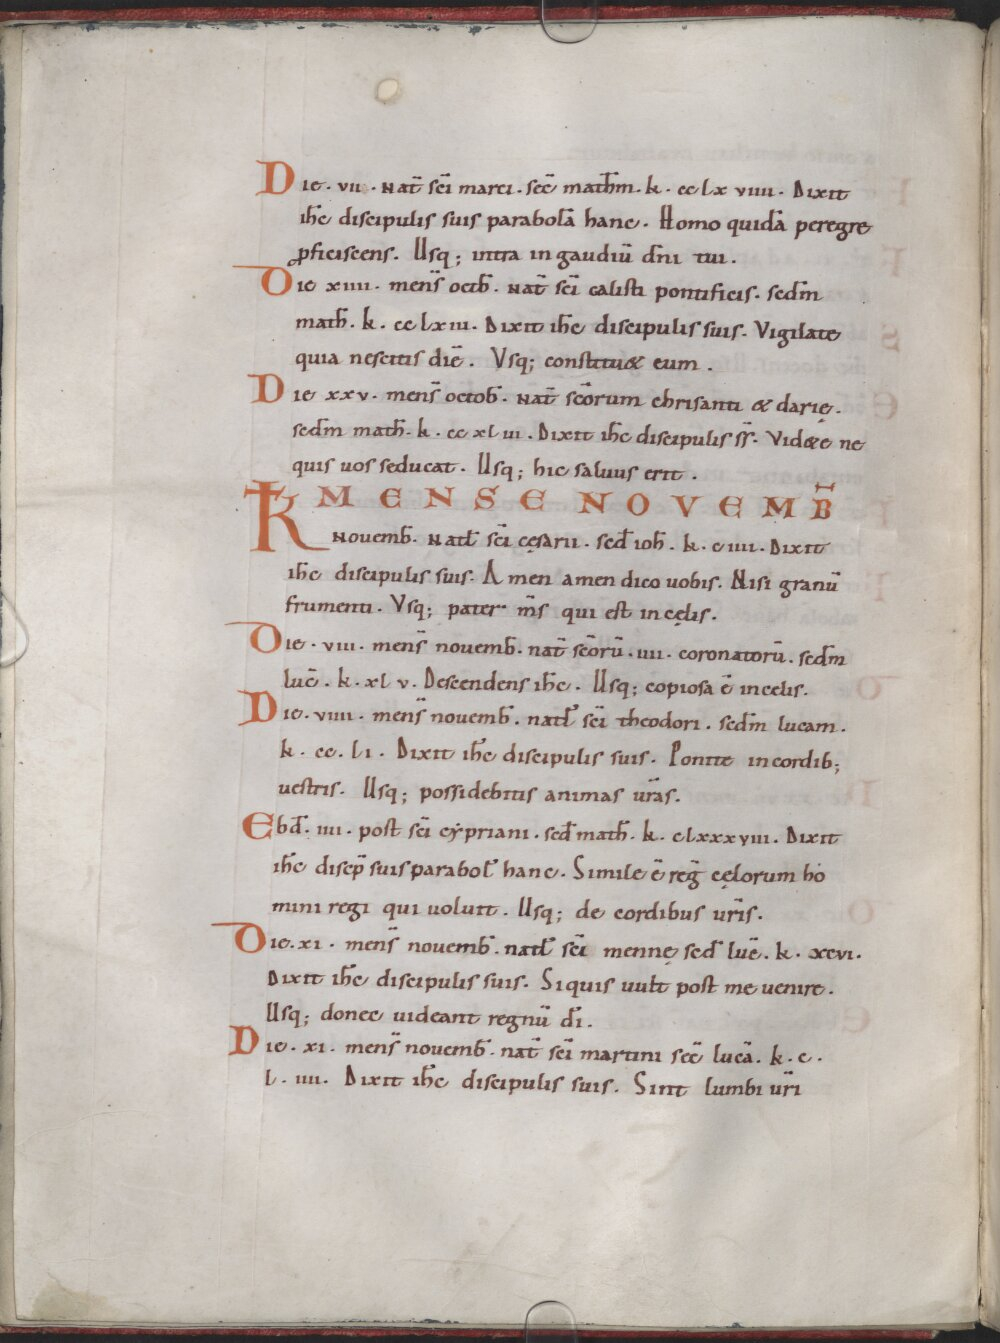 Die · vii · Nat̄ sc̄i marci · sec̄ math̄m · k · cc lx viiii · Dixit
ih̄c discipulis suis parabolā hanc · Homo quidā peregre
ꝓficiscens · Usq; intra in gaudiū dn̄i tui ·
Die xiiii · mens̄ octb̄ · Nat̄ sc̄i calisti pontificis · secd̄m
math̄ · k · cc lxiii · Dixit ih̄c discipulis suis · Vigilate
quia nescitis diē · Vsq; constitu& eum ·
Die xxv · mens̄ octob̄ · Nat̄ sc̄orum chrisanti & darię ·
secd̄m math̄ · k · cc xl iii · Dixit ih̄c discipulis ss̄ · Vid&e ne
quis uos seducat · Usq; hic saluus erit ·
MENSE NOVEMB̄
K Novemb̄ · Natl̄ sc̄i cęsarii · secd̄ ioh̄ · k · c iiii · Dixit
ih̄c discipulis suis · Amen amen dico uobis · Nisi granū
frumenti · Vsq; pater m̄s qui est in cęlis ·
Die · viii · mens̄ novemb̄ · nat̄ sc̄orū · iiii · coronatorū · secd̄m
luc̄ · k · xl v · Descendens ih̄c · Usq; copiosa ē in celis ·
Die · viiii · mens̄ novemb̄ · natl̄ sc̄i theodori · secd̄m lucam ·
k · cc · li · Dixit ih̄c discipulis suis · Ponite in cordib;
uestris · Usq; possidebitis animas ur̄as ·
Ebd̄ · iiii · post sc̄i cẏpriani · secd̄ math̄ · k · clxxxviii · Dixit
ih̄c discip̄ suis parabol̄ hanc · Simile ē reḡ cęlorum ho
mini regi qui uoluit · Usq; de cordibus ur̄is ·
Die · xi · mens̄ novemb̄ · natl̄ sc̄i mennę secd̄ luc̄ · k · xcvi ·
Dixit ih̄c discipulis suis · Siquis uult post me uenire ·
Usq; donec uideant regnū dī ·
Die · xi · mens̄ novemb̄ · nat̄ sc̄i martini sec̄ lucā · k · c ·
l · iiii · Dixit ih̄c discipulis suis · Sint lumbi ur̄i